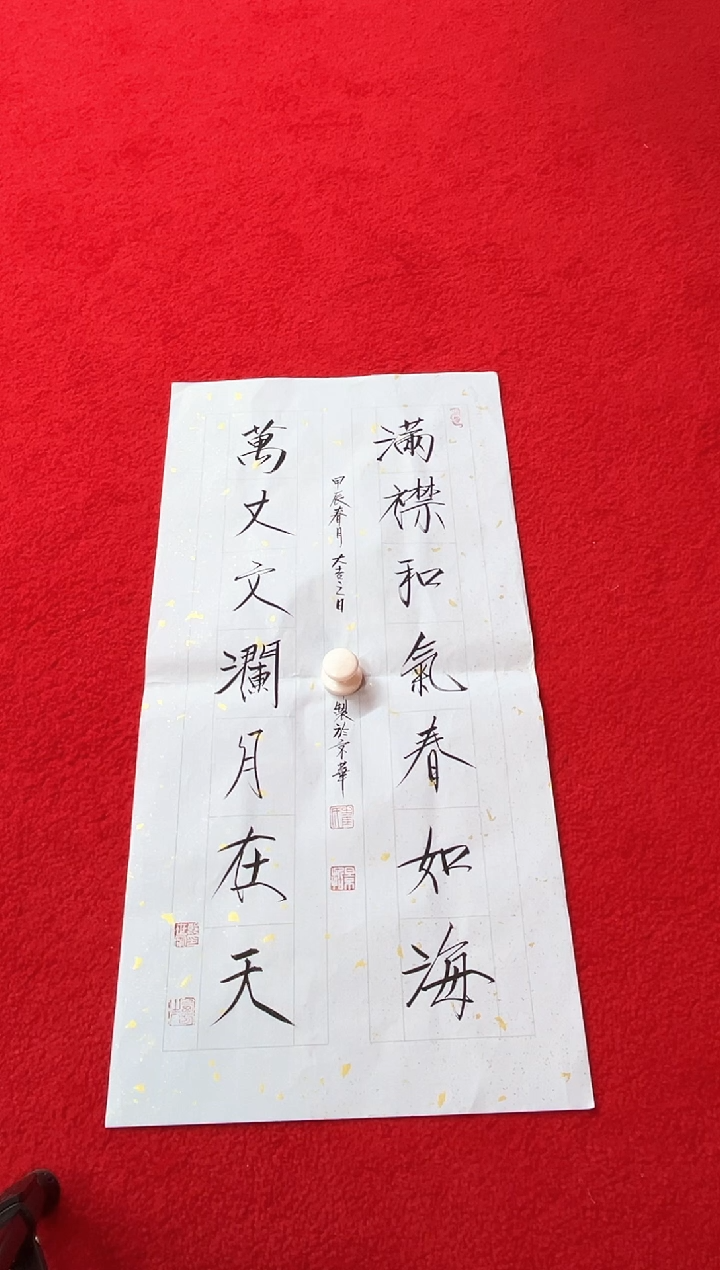 滿襟和氣春如海
甲辰春月 大吉之日 製於京華
萬丈文瀾月在天